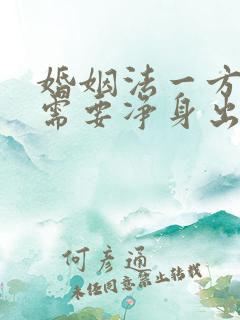 婚姻法一方
需要净身出
何彦通
未经同意禁止转载